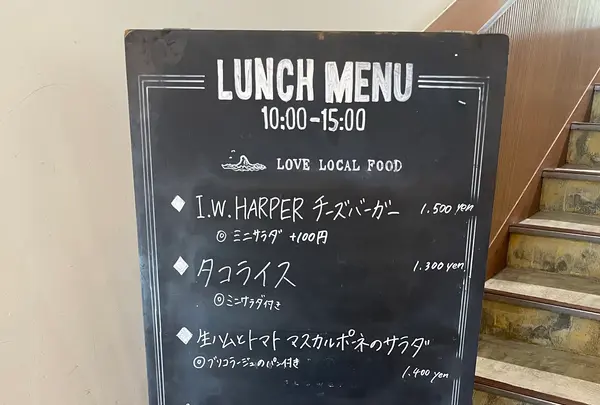 LUNCH MENU
10:00-15:00
LOVE LOCAL FOOD
I.W. HARPER チーズバーガー 1.500 yen
◎ ミニサラダ +100円
タコライス 1.300 yen
◎ ミニサラダ付き
生ハムとトマト マスカルポーネのサラダ
◎ ブリコラージュのパン付き
1.400 yen